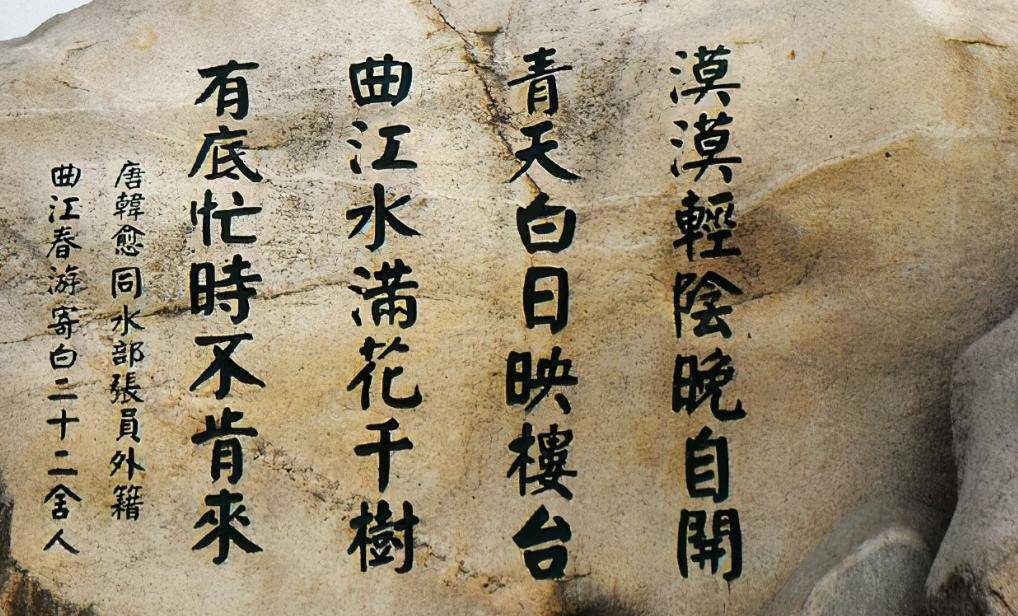 漠漠輕陰晚自開
青天白日映樓台
曲江水滿花千樹
有底忙時不肯來
唐韓愈同水部張員外籍
曲江春游寄白二十二舍人